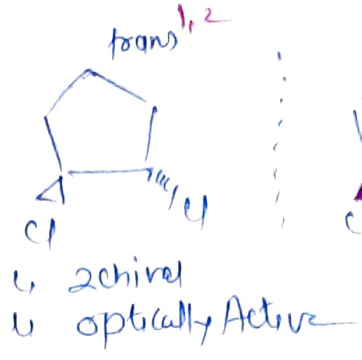 trans 1,2
Cl Cl
C
↳ 2 chiral
↳ optically Active